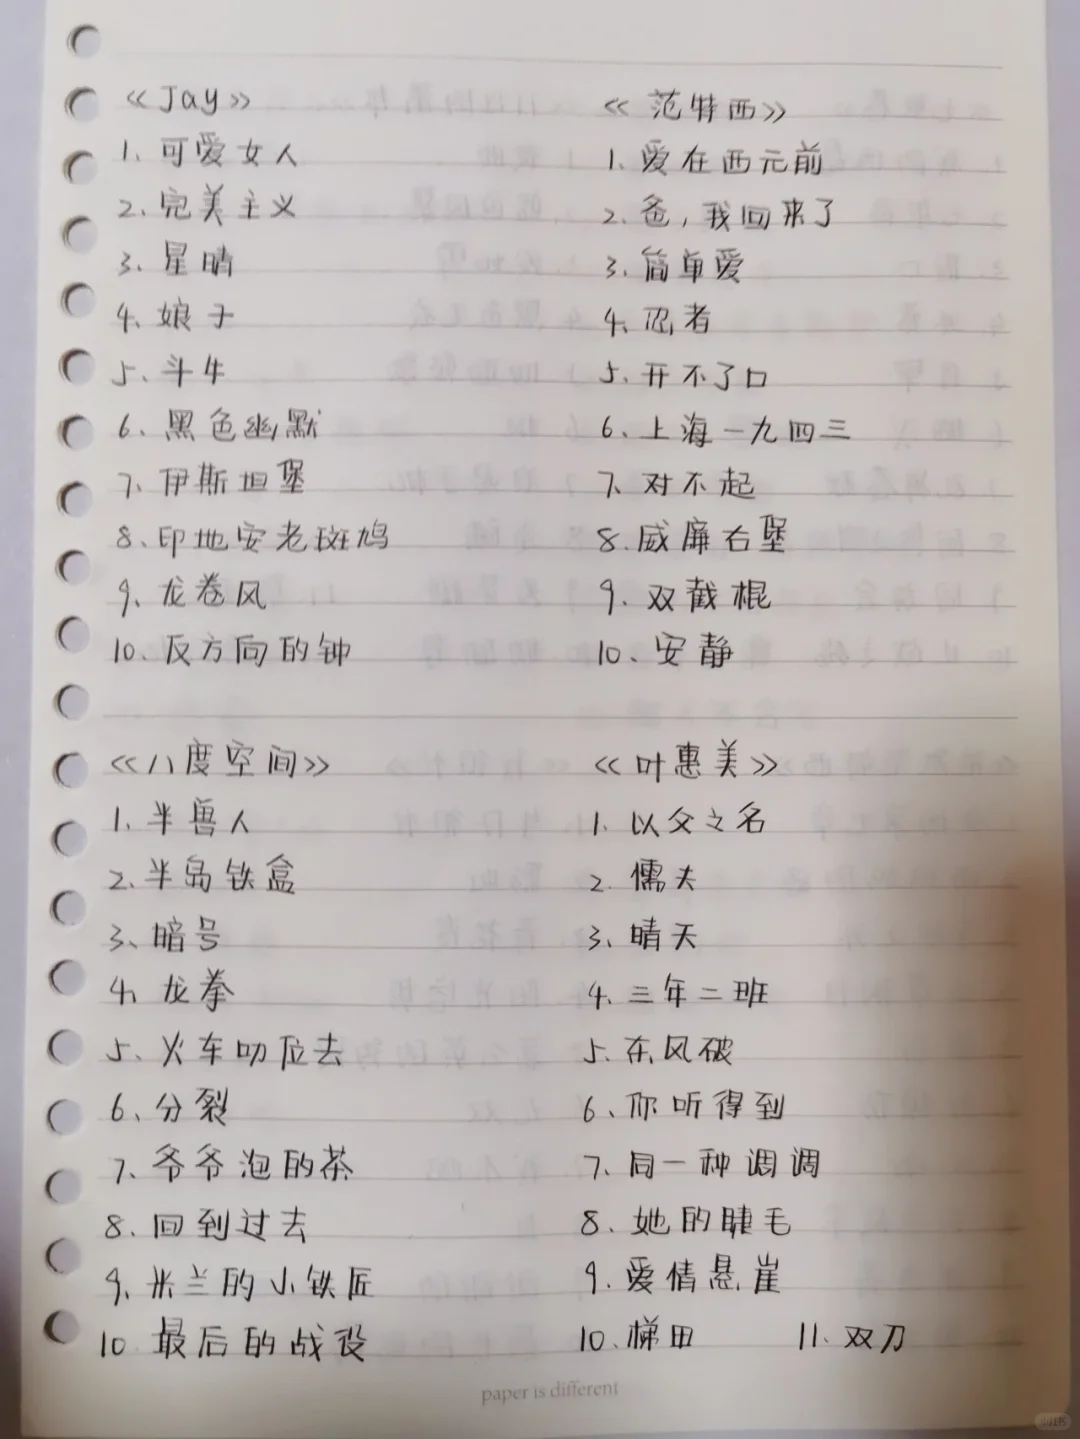 《Jay》
1、可爱女人
2、完美主义
3、星晴
4、娘子
5、斗牛
6、黑色幽默
7、伊斯坦堡
8、印地安老斑鸠
9、龙卷风
10、反方向的钟
《范特西》
1、爱在西元前
2、爸，我回来了
3、简单爱
4、忍者
5、开不了口
6、上海一九四三
7、对不起
8、威廉古堡
9、双截棍
10、安静
《八度空间》
1、半兽人
2、半岛铁盒
3、暗号
4、龙拳
5、火车叨位去
6、分裂
7、爷爷泡的茶
8、回到过去
9、米兰的小铁匠
10、最后的战役
《叶惠美》
1、以父之名
2、懦夫
3、晴天
4、三年二班
5、东风破
6、你听得到
7、同一种调调
8、她的睫毛
9、爱情悬崖
10、梯田 11、双刀
paper is different
小红书